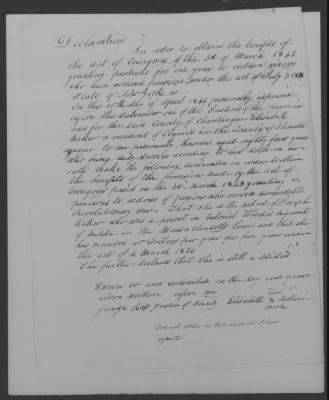 Declaration
In order to obtain the benefits of
the act of Congress of the 3d of March 1843
granting pensions for one year to certain widows
who have received pensions under the act of July 7. 1838
State of New York ss
On this 10th day of April 1844 personally appeared
before the subscriber one of the Justices of the peace in
and for the Said County of Chautauque Elizabeth
Baker a resident of Clymer in the County of Chautau
que to me personally known aged eighty four years
who being duly sworn according to law doth on her
oath make the following declaration in order to obtain
the benefits of the provision made by the act of
Congress passed on the 3d March 1843 granting
pensions to widows of persons who served during the
Revolutionary war. That she is the widow of Joseph
Baker who was a private in Colonel Woods Regiment
of militia in the Massachusetts line and that she
has received Dollars per year for five years under
the act of
She further declares that she is still a widow
Sworn to and subscribed on the day and year
above written before me
George Justice of Peace Elizabeth X Baker
mark